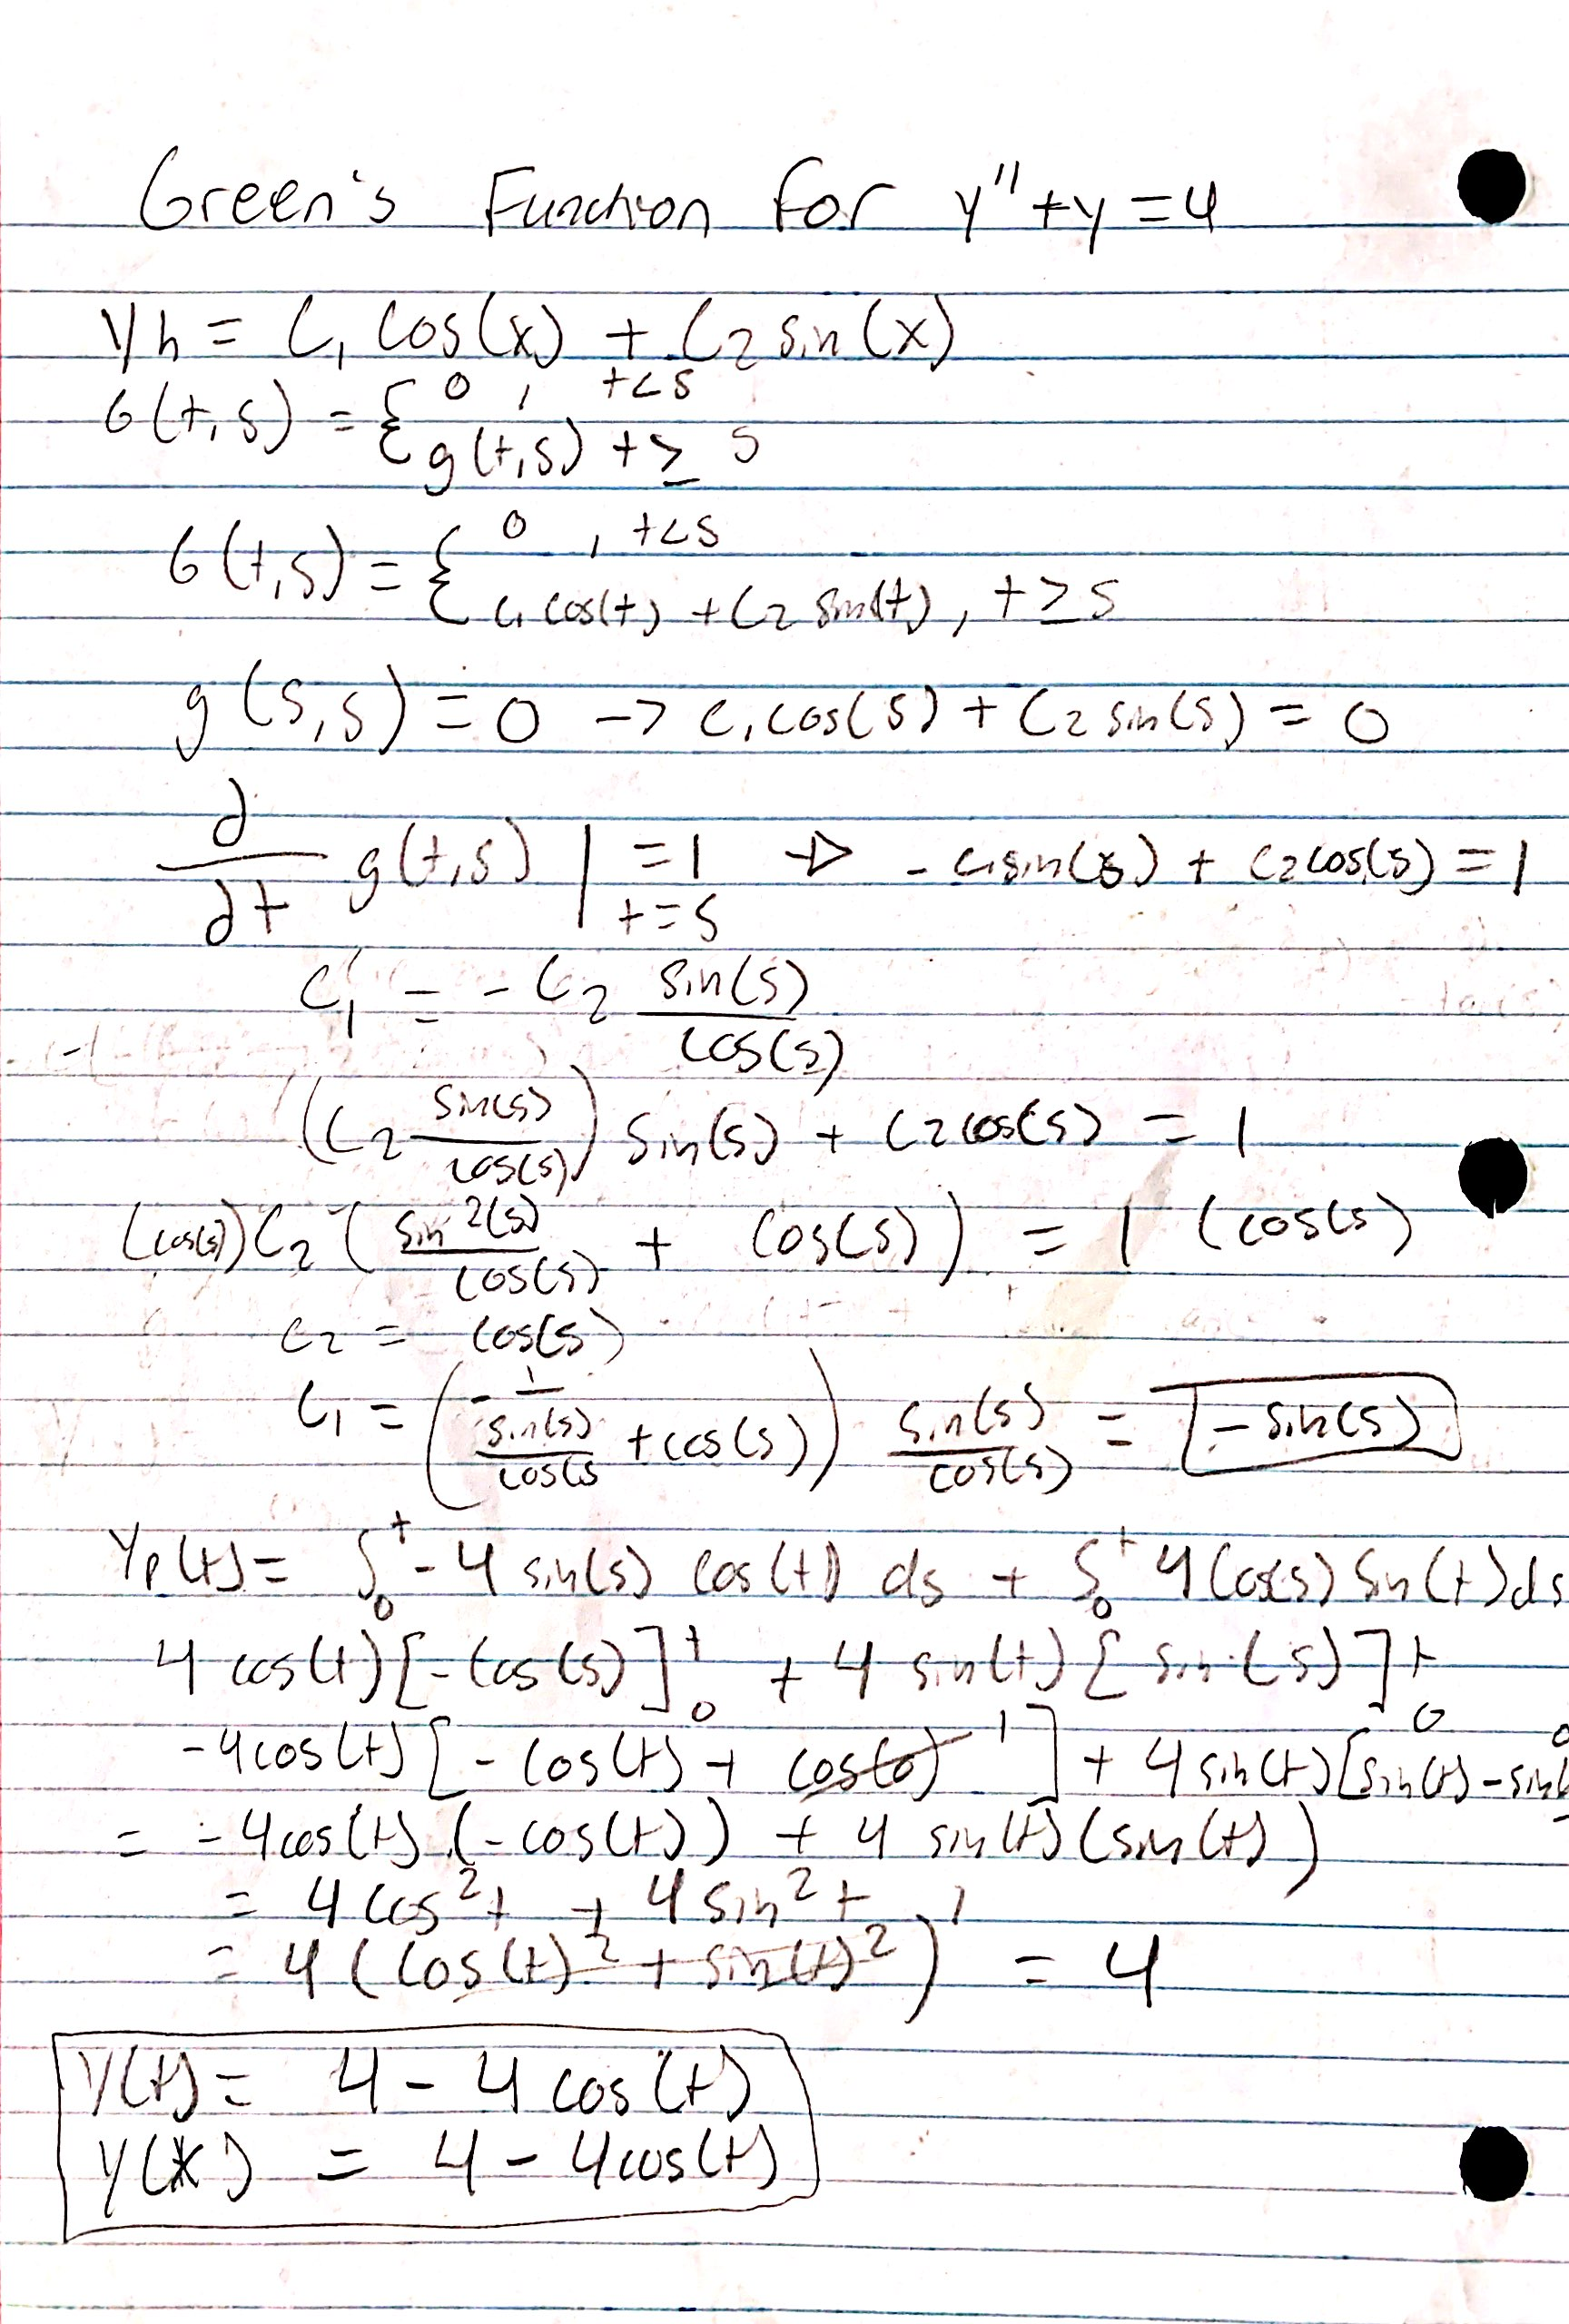 Green's Function for y''+y=4
yh = C₁ cos(x) + C₂ sin(x)
G(t,s) = { 0 , t<s
g(t,s) t ≥ s
G(t,s) = { 0 , t<s
c₁ cos(t) + C₂ sin(t) , t ≥ s
g(s,s) = 0 -> c₁ cos(s) + C₂ sin(s) = 0
∂/∂t g(t,s) |t=s = 1 -> - c₁ sin(s) + C₂ cos(s) = 1
C₁ = - C₂ sin(s)/cos(s)
(C₂ sin(s)/cos(s)) sin(s) + C₂ cos(s) = 1
(cos(s)) C₂ ( sin²(s)/cos(s) + cos(s) ) = 1 (cos(s)
C₂ = cos(s)
C₁ = ( -1/(sin(s)/cos(s + cos(s)) ) sin(s)/cos(s) = -sin(s)
Yp(t) = ∫₀ᵗ -4 sin(s) cos(t) ds + ∫₀ᵗ 4 cos(s) sin(t) ds
4 cos(t) [-cos(s)]₀ᵗ + 4 sin(t) [sin(s)]₀ᵗ
-4cos(t) [-cos(t) + cos(0) 1] + 4 sin(t) [sin(t) - sin( 0
= -4cos(t) (-cos(t)) + 4 sin(t) (sin(t))
= 4 cos² t + 4 sin² t
= 4 (cos(t)² + sin(t)²) 1 = 4
Y(t) = 4 - 4 cos(t)
Y(x) = 4 - 4cos(t)